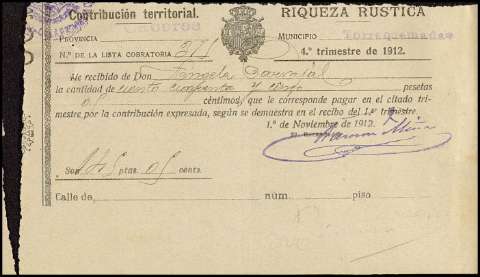 Contribución territorial. RIQUEZA RUSTICA
PROVINCIA CACERES MUNICIPIO Torrequemada
N.º DE LA LISTA COBRATORIA 4.º trimestre de 1912.
He recibido de Don Angela Carvajal
la cantidad de ciento cincuenta y cinco pesetas
céntimos, que le corresponde pagar en el citado tri-
mestre por la contribución expresada, según se demuestra en el recibo del 1.er trimestre.
1.º de Noviembre de 1912.
Ramon
Son ptas. 05 cents.
Calle de núm. piso